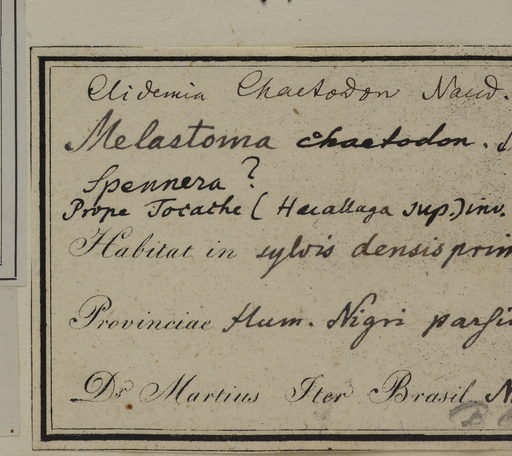 Clidemia Chaetodon Naud.
Melastoma chaetodon.
Spennera ?
Prope Tocache (Huallaga sup.) inv.
Habitat in sylvis densis prim
Provinciae flum. Nigri
Dr Martius Iter Brasil